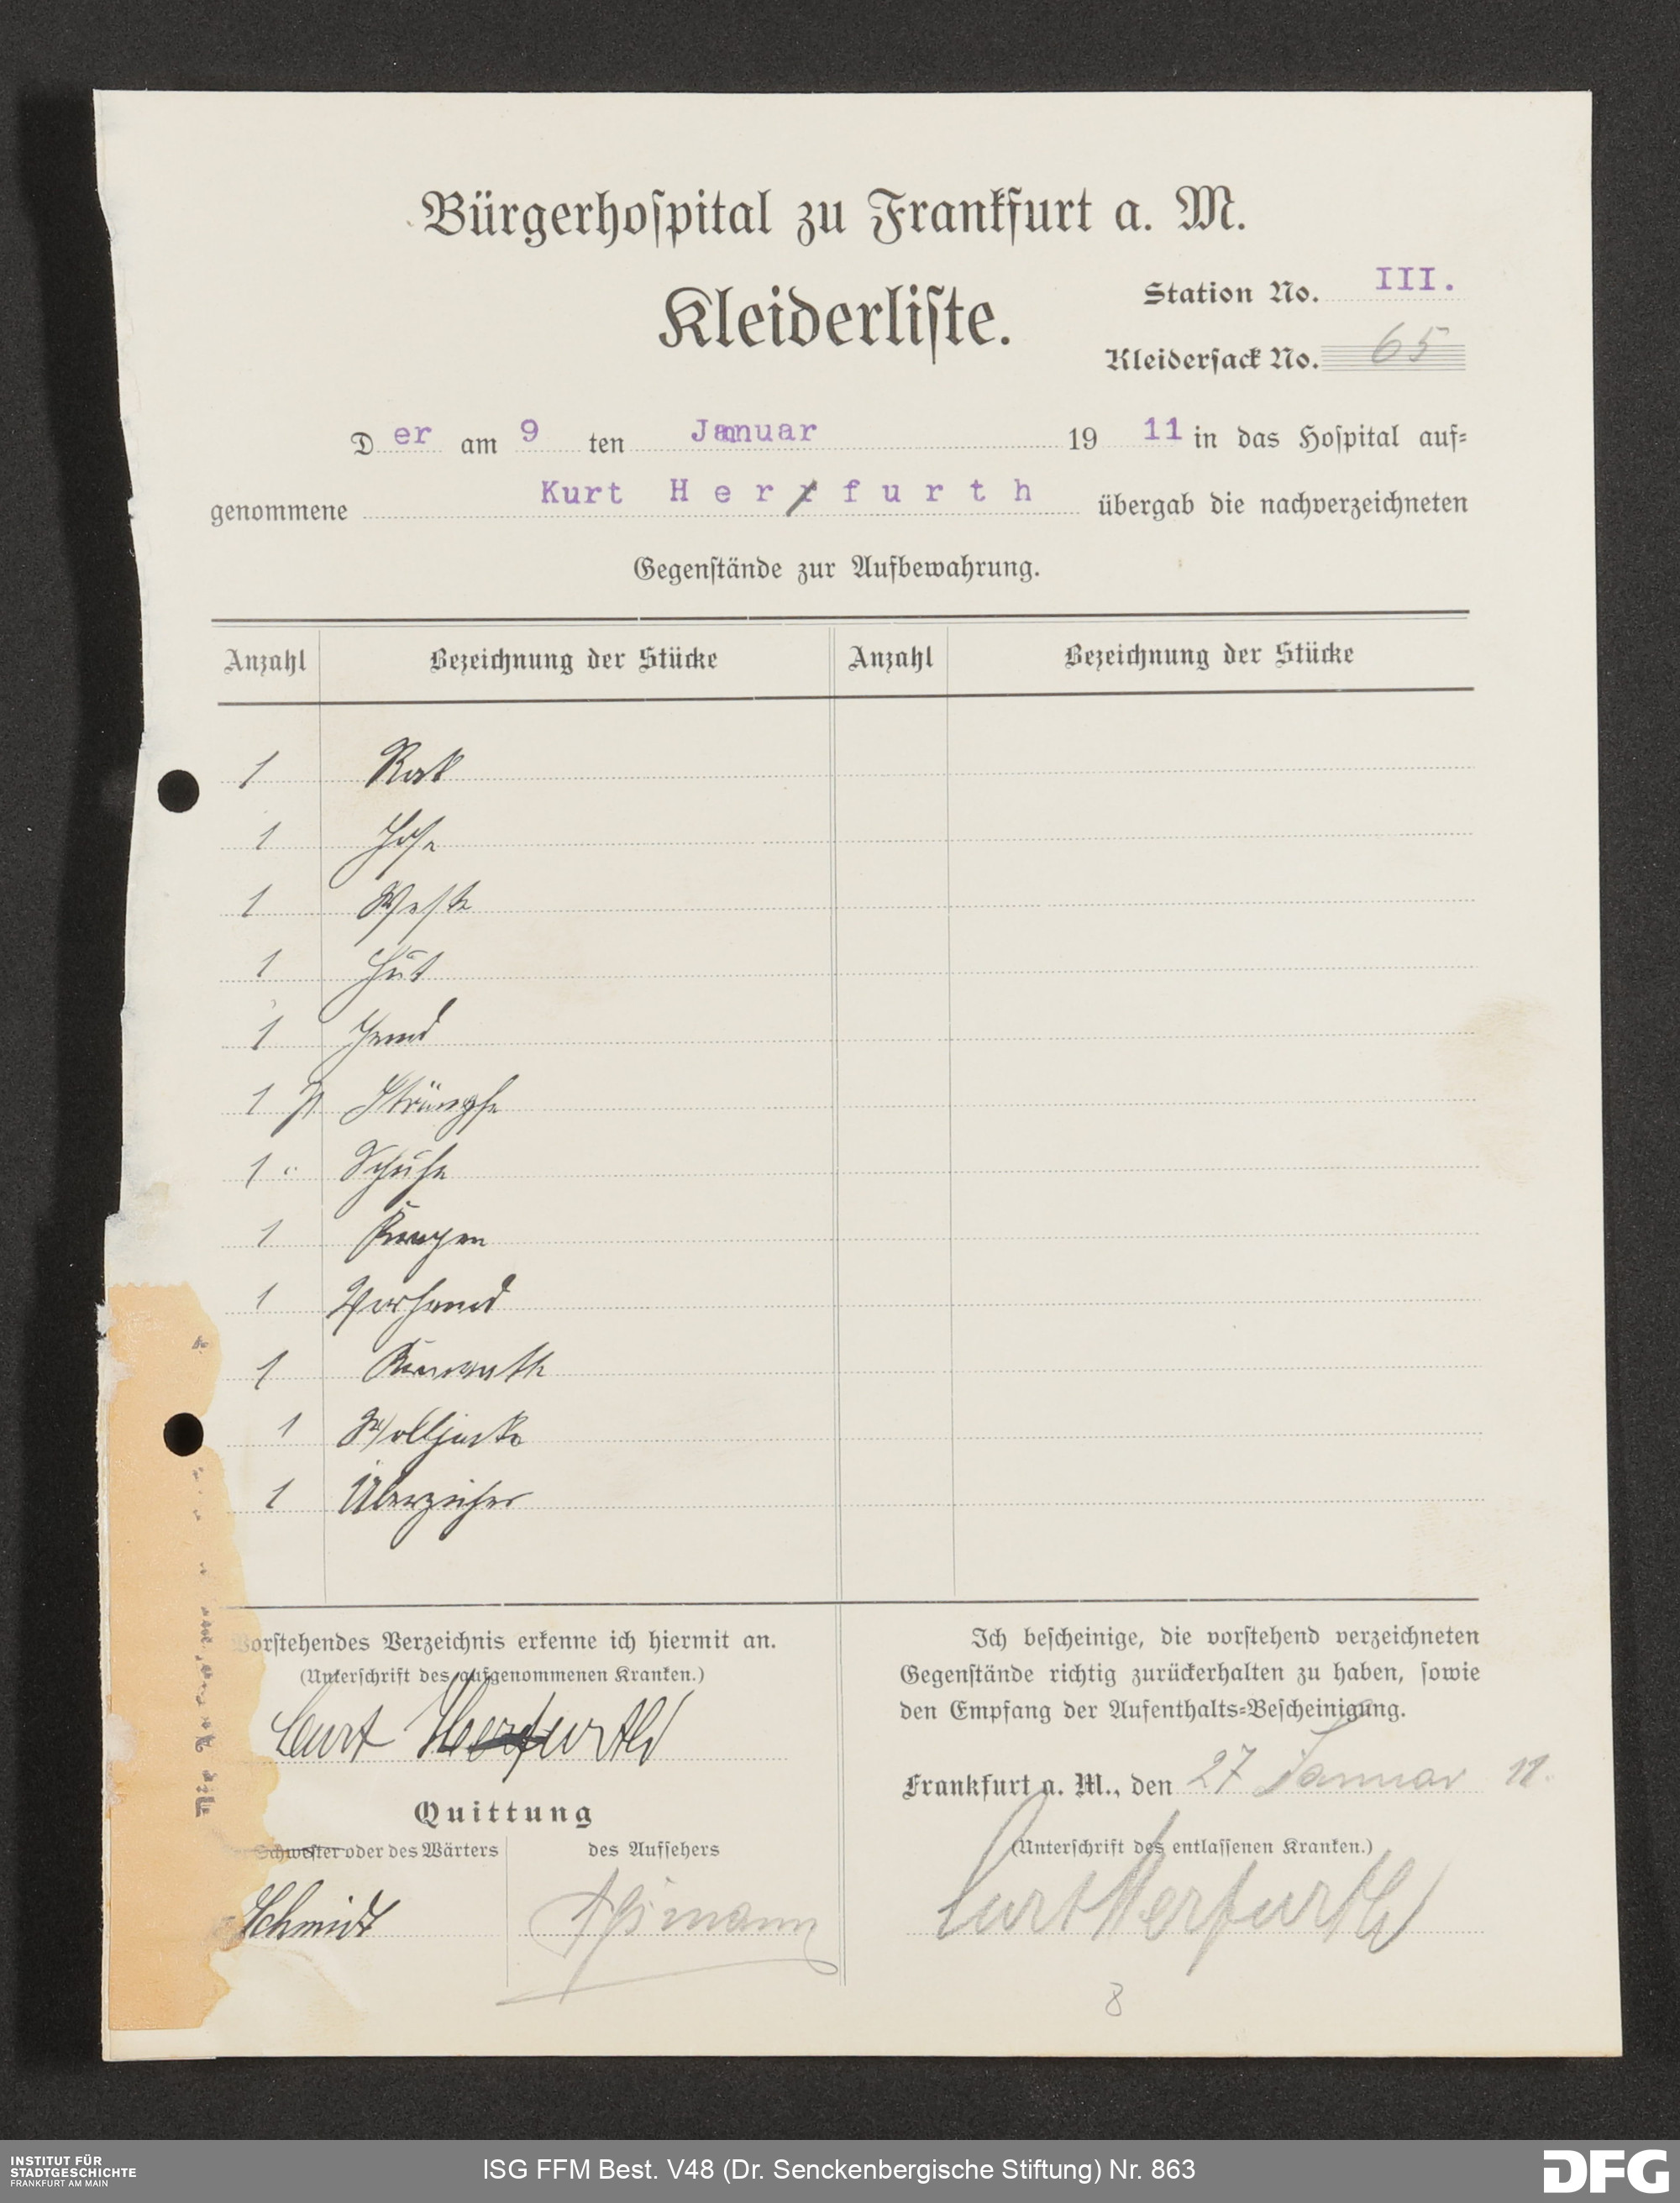 Bürgerhoſpital zu Frankfurt a. M.
Kleiderliſte.
Station No. III.
Kleiderſack No. 65
Der am 9 ten Januar 1911 in das Hoſpital auf=
genommene Kurt Herrfurth übergab die nachverzeichneten
Gegenſtände zur Aufbewahrung.
Anzahl Bezeichnung der Stücke Anzahl Bezeichnung der Stücke
1 Rock
1 Hose
1 Weste
1 Hut
1 Hemd
1 P. Strümpfe
1 " Schuhe
1 Kragen
1 Vorhemd
1 Krawatte
1 Wolljacke
1 Überzieher
Vorſtehendes Verzeichnis erkenne ich hiermit an.
(Unterſchrift des aufgenommenen Kranken.)
Curt Herfurth
Quittung
Schweſter oder des Wärters des Aufſehers
Schmidt
Ich beſcheinige, die vorſtehend verzeichneten
Gegenſtände richtig zurückerhalten zu haben, ſowie
den Empfang der Aufenthalts=Beſcheinigung.
Frankfurt a. M., den 27 Januar 11.
(Unterſchrift des entlaſſenen Kranken.)
Curt Herfurth
8
INSTITUT FÜR
STADTGESCHICHTE
FRANKFURT AM MAIN
ISG FFM Best. V48 (Dr. Senckenbergische Stiftung) Nr. 863
DFG